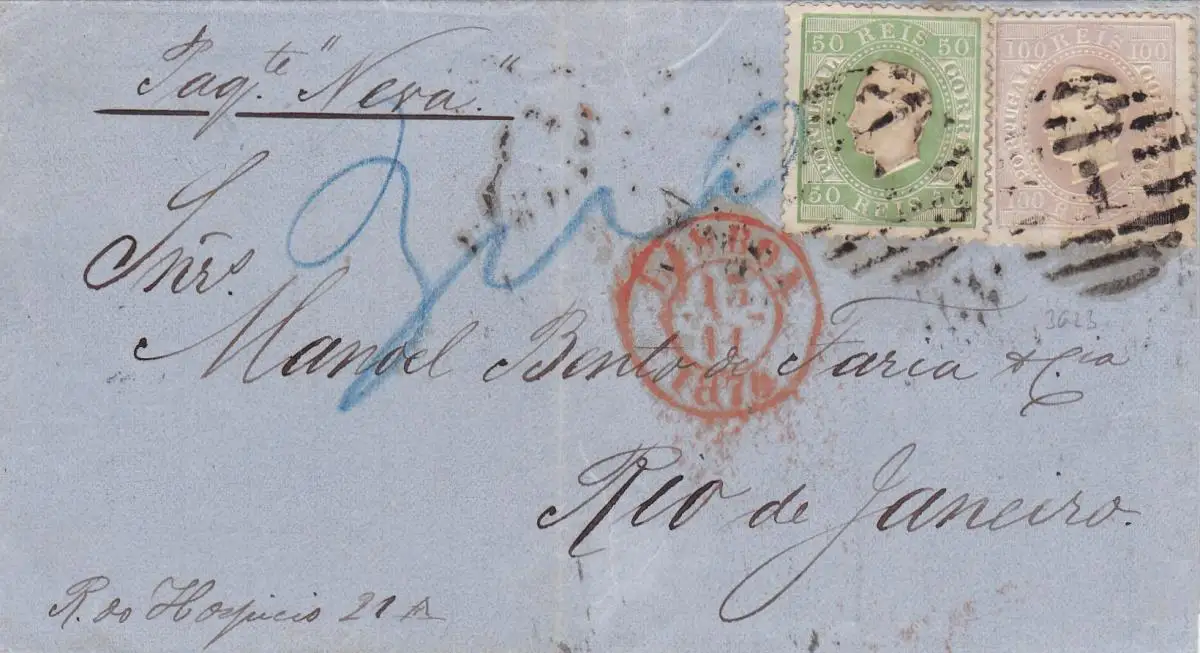 Paq.te "Neva"
50 REIS 50
PORTUGAL
CORREIO
50 REIS 50
100 REIS 100
PORTUGAL
100
1
Snr.s
LISBOA
1878
3623
Manoel Bento de Faria & C.ia
Rio de Janeiro.
R. do Hospicio 21 A